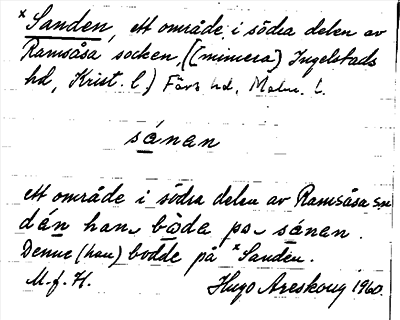 *Sanden, ett område i södra delen av
Ramsåsa socken, [(numera) Ingelstads
hd, Krist. l.] Färs hd, Malm. l.
sánan
ett område i södra delen av Ramsåsa sn
dán han bòda po sánan.
Denne (han) bodde på *Sanden.
M.f.H. Hugo Areskoug 1960.